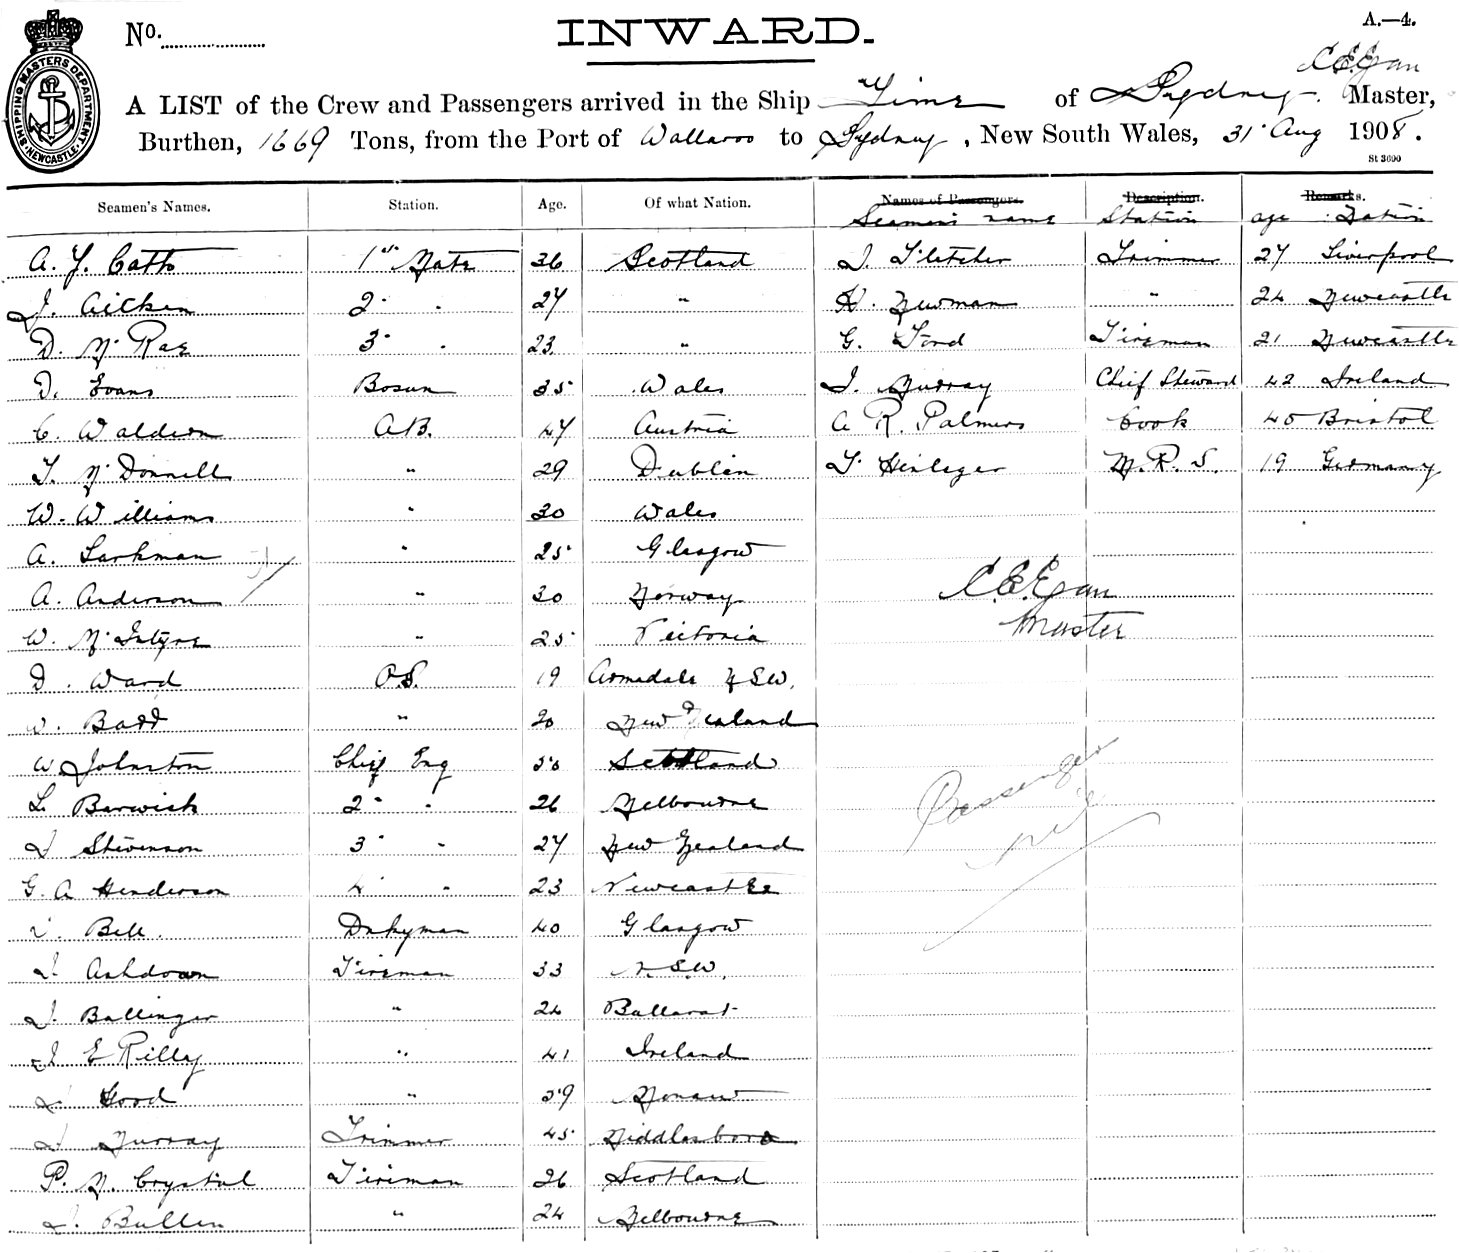 SHIPPING MASTERS DEPARTMENT NEWCASTLE
No.
INWARD.
A.—4.
C.E.Egan
A LIST of the Crew and Passengers arrived in the Ship "Time of Sydney. Master,
Burthen, 1669 Tons, from the Port of Wallaroo to Sydney, New South Wales, 31 Aug 1908.
St 3690
Seamen's Names. Station. Age. Of what Nation. Names of Passengers. Description. Remarks.
Seamen's name Station age Nation
A. J. Catto 1st Mate 36 Scotland J. Fletcher Trimmer 27 Liverpool
J. Aitken 2 " 27 " H. Newman " 24 Newcastle
D. McRae 3 " 23 " G. Ford Fireman 21 Newcastle
D. Evans Bosun 35 Wales J. Murray Chief Steward 42 Ireland
C. Waldron A.B. 47 Austria A. R. Palmers Cook 40 Bristol
T. McDonnell " 29 Dublin M.R.S. 19 Germany
W. Williams " 30 Wales
A. Larkman " 25 Glasgow
A. Anderson " 30 Norway
C.E.Egan
W. McIntyre " 25 Victoria
Master
D. Ward O.S. 19 Armadale NSW.
W. Badd " 20 New Zealand
W Johnston Chief Eng Scotland
L. Barwick 2 " 26 Melbourne
Passengers
nil
J Stevenson 3 " 27 New Zealand
G. A Henderson 4 " 23 Newcastle
Bell. Dnkyman 40 Glasgow
J. Ashdown Fireman 33 N.S.W.
J. Ballinger " 24 Ballarat
J E Rilly " 41 Ireland
Good " 39
J Murray Trimmer 45 Middlesboro
P. M. Crystal Fireman 26 Scotland
J. Bullen " 24 Melbourne